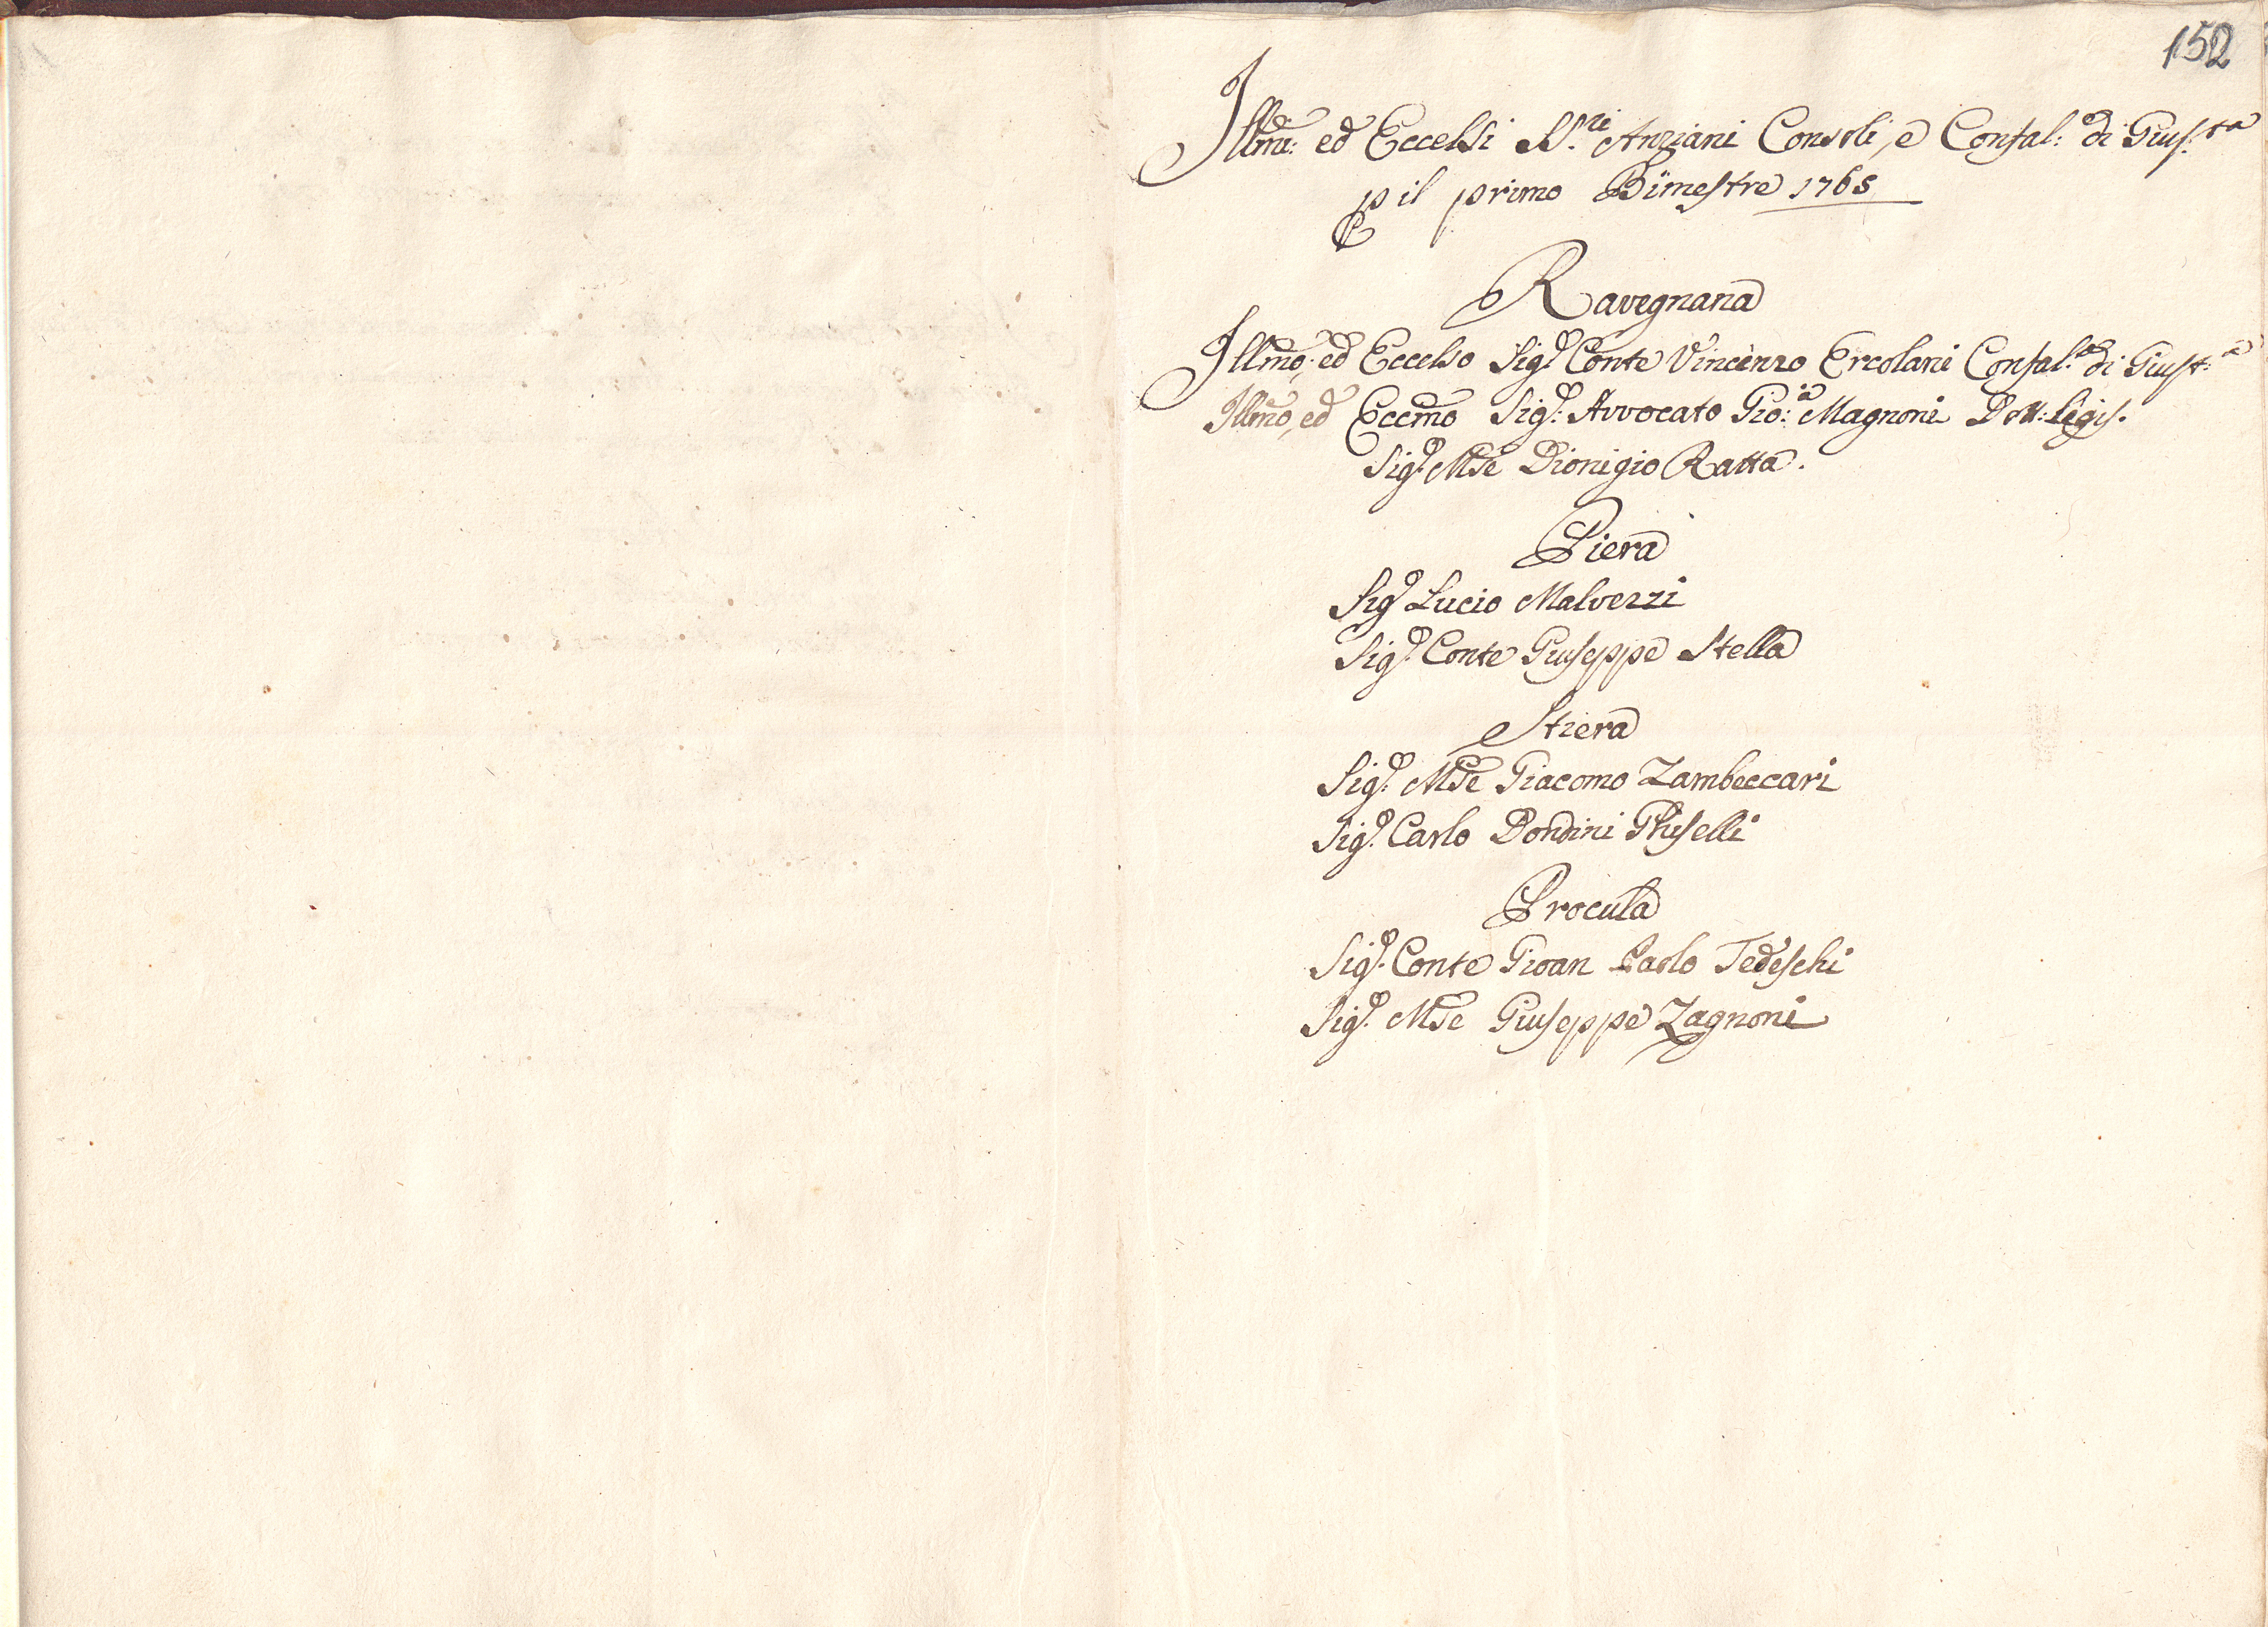 152
Illmi: ed Eccelsi SS.ri Anziani Consoli, e Confal: di Gius:ta
p il primo Bimestre 1765
Ravegnana
Illmo, ed Eccelso Sigr Conte Vincenzo Ercolani Confal.e di Giust:a
Illmo, ed Eccmo Sigr: Avvocato Gio:a Magnoni Dott: Legis.
Sigr Mse Dionigio Ratta.
Piera
Sigr Lucio Malvezzi
Sigr. Conte Giuseppe Stella
Stiera
Sigr: Mse Giacomo Zambeccari
Sigr. Carlo Dondini Ghiselli
Procula
Sigr. Conte Gioan Paolo Tedeschi
Sigr. Mse Giuseppe Zagnoni